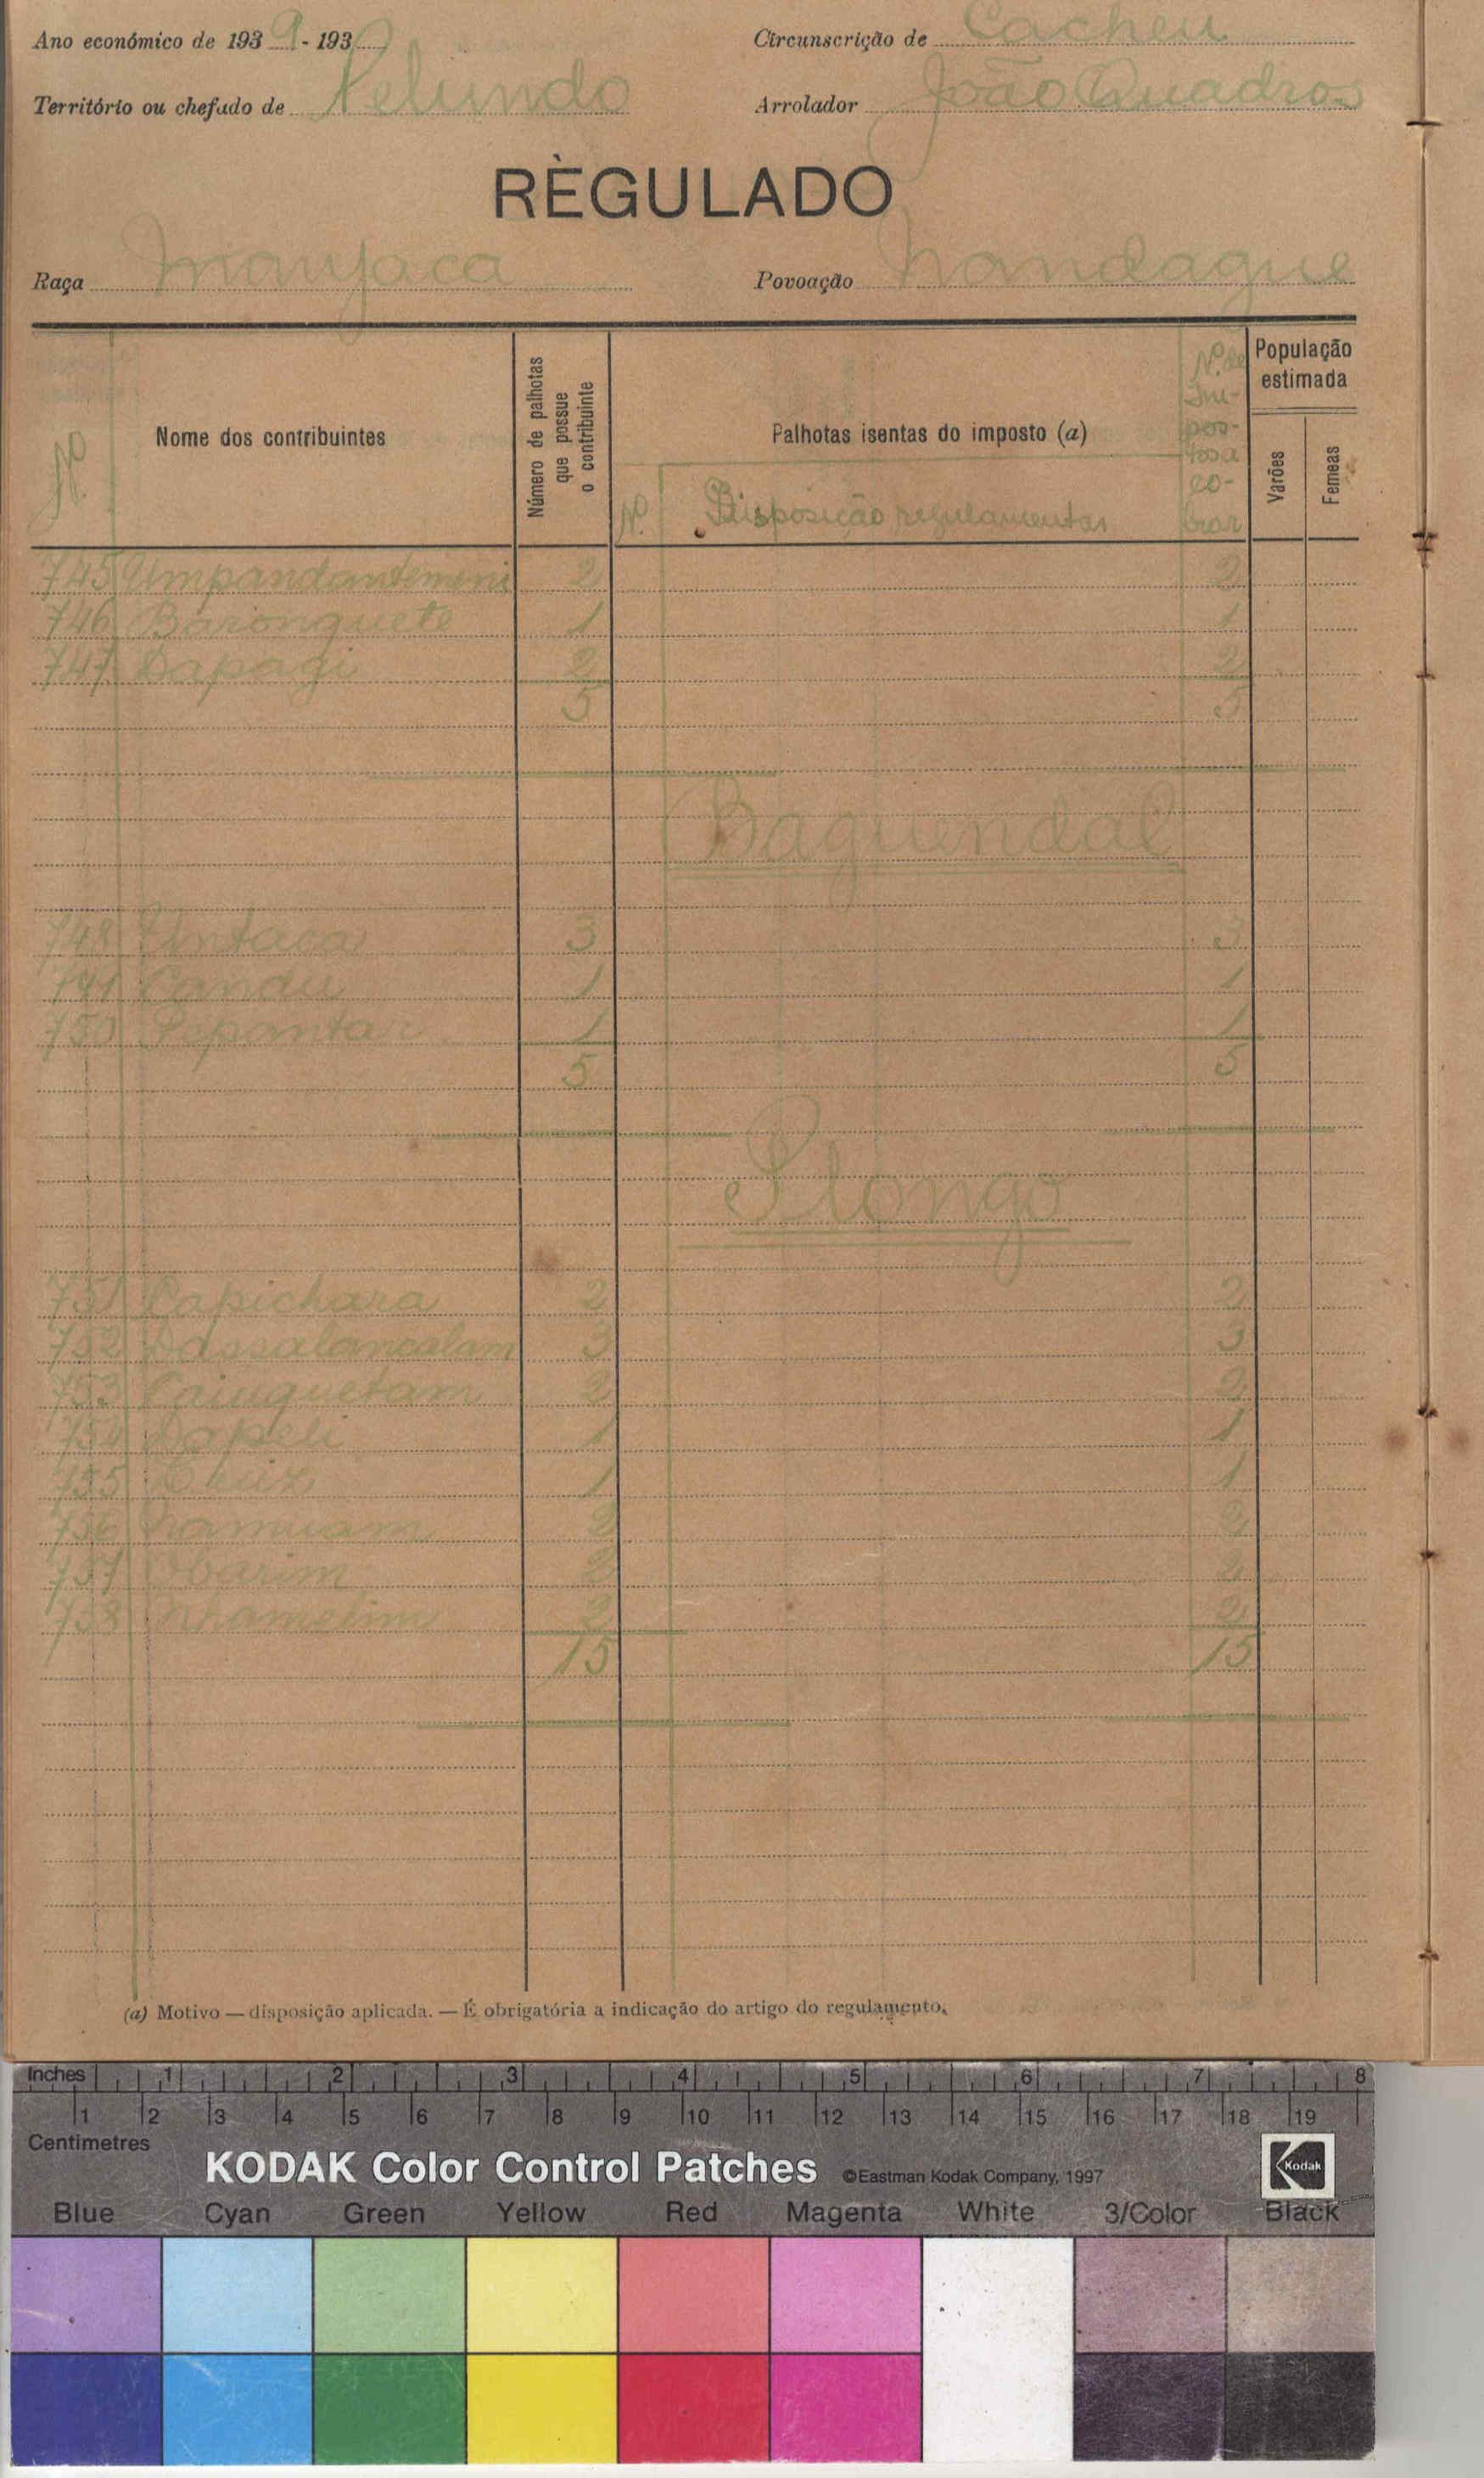 Ano económico de 1939-193
Circunscrição de Cacheu
Território ou chefado de Pelundo
Arrolador João Quadros
RÈGULADO
Raça Manjaca
Povoação Nandague
Nº
Nome dos contribuintes
Número de palhotas que possue o contribuinte
Palhotas isentas do imposto (a)
Nº Disposição regulamentar
Nº de Impostos a cobrar
População estimada
Varões
Femeas
745 Umpandantemeni 2 2
746 Baronquete 1 1
747 Dapagi 2 2
5 5
Baguendal
748 Untaca 3 3
749 Candu 1 1
750 Pepantar 1 1
5 5
Plongo
751 Capichara 2 2
752 Dassalancalam 3 3
753 Cainquetam 2 2
754 Dapeli 1 1
755 1 1
756 Namuam 2 2
757 Obarim 2 2
758 Nhamelim 2 2
15 15
(a) Motivo — disposição aplicada. — É obrigatória a indicação do artigo do regulamento.
Inches 1 2 3 4 5 6 7 8
1 2 3 4 5 6 7 8 9 10 11 12 13 14 15 16 17 18 19
Centimetres
KODAK Color Control Patches ©Eastman Kodak Company, 1997 Kodak
Blue Cyan Green Yellow Red Magenta White 3/Color Black